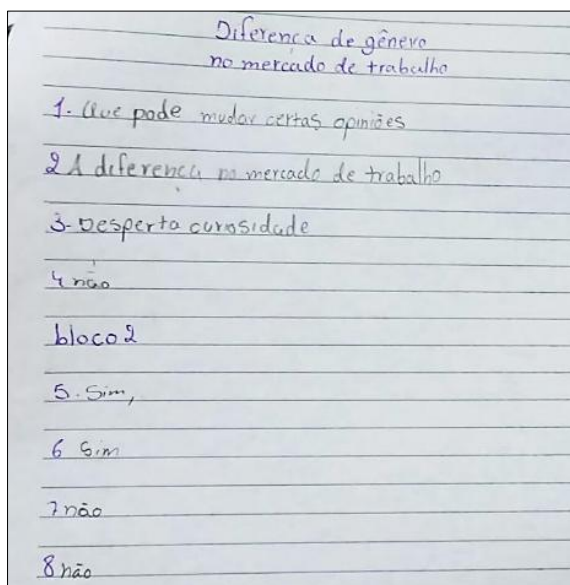 Diferença de gênero
no mercado de trabalho
1. Que pode mudar certas opiniões
2 A diferença no mercado de trabalho
3. Desperta curiosidade
4 não
bloco 2
5. Sim,
6 Sim
7 não
8 não